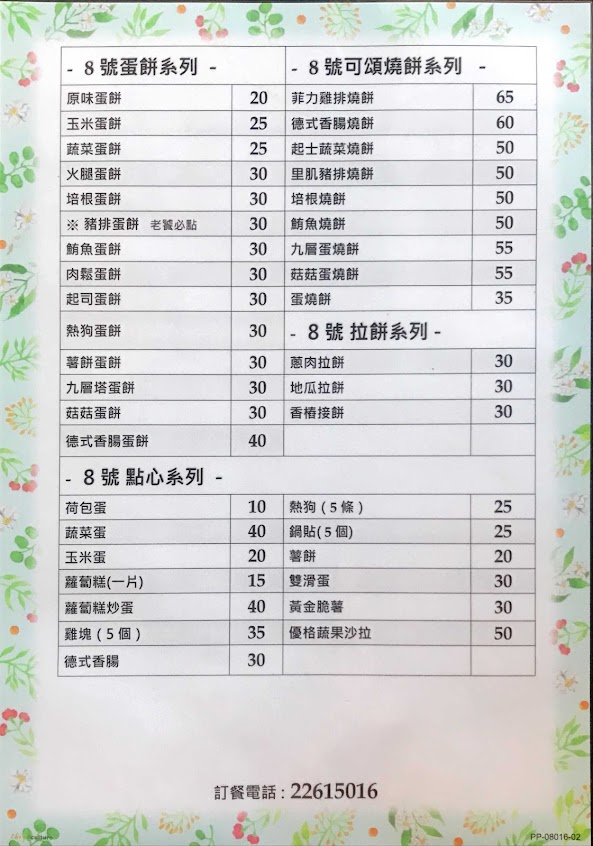 - 8 號蛋餅系列 -
原味蛋餅 20
玉米蛋餅 25
蔬菜蛋餅 25
火腿蛋餅 30
培根蛋餅 30
※ 豬排蛋餅 老饕必點 30
鮪魚蛋餅 30
肉鬆蛋餅 30
起司蛋餅 30
熱狗蛋餅 30
薯餅蛋餅 30
九層塔蛋餅 30
菇菇蛋餅 30
德式香腸蛋餅 40
- 8 號可頌燒餅系列 -
菲力雞排燒餅 65
德式香腸燒餅 60
起士蔬菜燒餅 50
里肌豬排燒餅 50
培根燒餅 50
鮪魚燒餅 50
九層蛋燒餅 55
菇菇蛋燒餅 55
蛋燒餅 35
- 8 號 拉餅系列 -
蔥肉拉餅 30
地瓜拉餅 30
香椿接餅 30
- 8 號 點心系列 -
荷包蛋 10
蔬菜蛋 40
玉米蛋 20
蘿蔔糕(一片) 15
蘿蔔糕炒蛋 40
雞塊 ( 5 個 ) 35
德式香腸 30
熱狗 ( 5 條 ) 25
鍋貼( 5 個) 25
薯餅 20
雙滑蛋 30
黃金脆薯 30
優格蔬果沙拉 50
訂餐電話 : 22615016
PP-08016-02